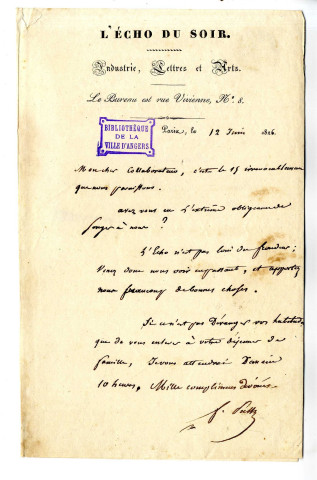 L'ÉCHO DU SOIR.
Industrie, Lettres et Arts.
Le Bureau est rue Vivienne, N.° 8.
BIBLIOTHÈQUE
DE LA
VILLE D'ANGERS
Paris, le 12 Juin 1826.
Mon cher collaborateur, c'est le 15 irrévocablement
que nous paraissons.
avez vous eu l'extrême obligeance de
songer à nous?
L'Echo n'est pas loin du
Venez donc nous voir en passant, et apportez
nous beaucoup de bonnes choses.
Si ce n'est pas déranger vos habitudes
que de vous enlever à votre déjeuner de
famille, je vous attendrai
10 heures, Mille complimens dévoués